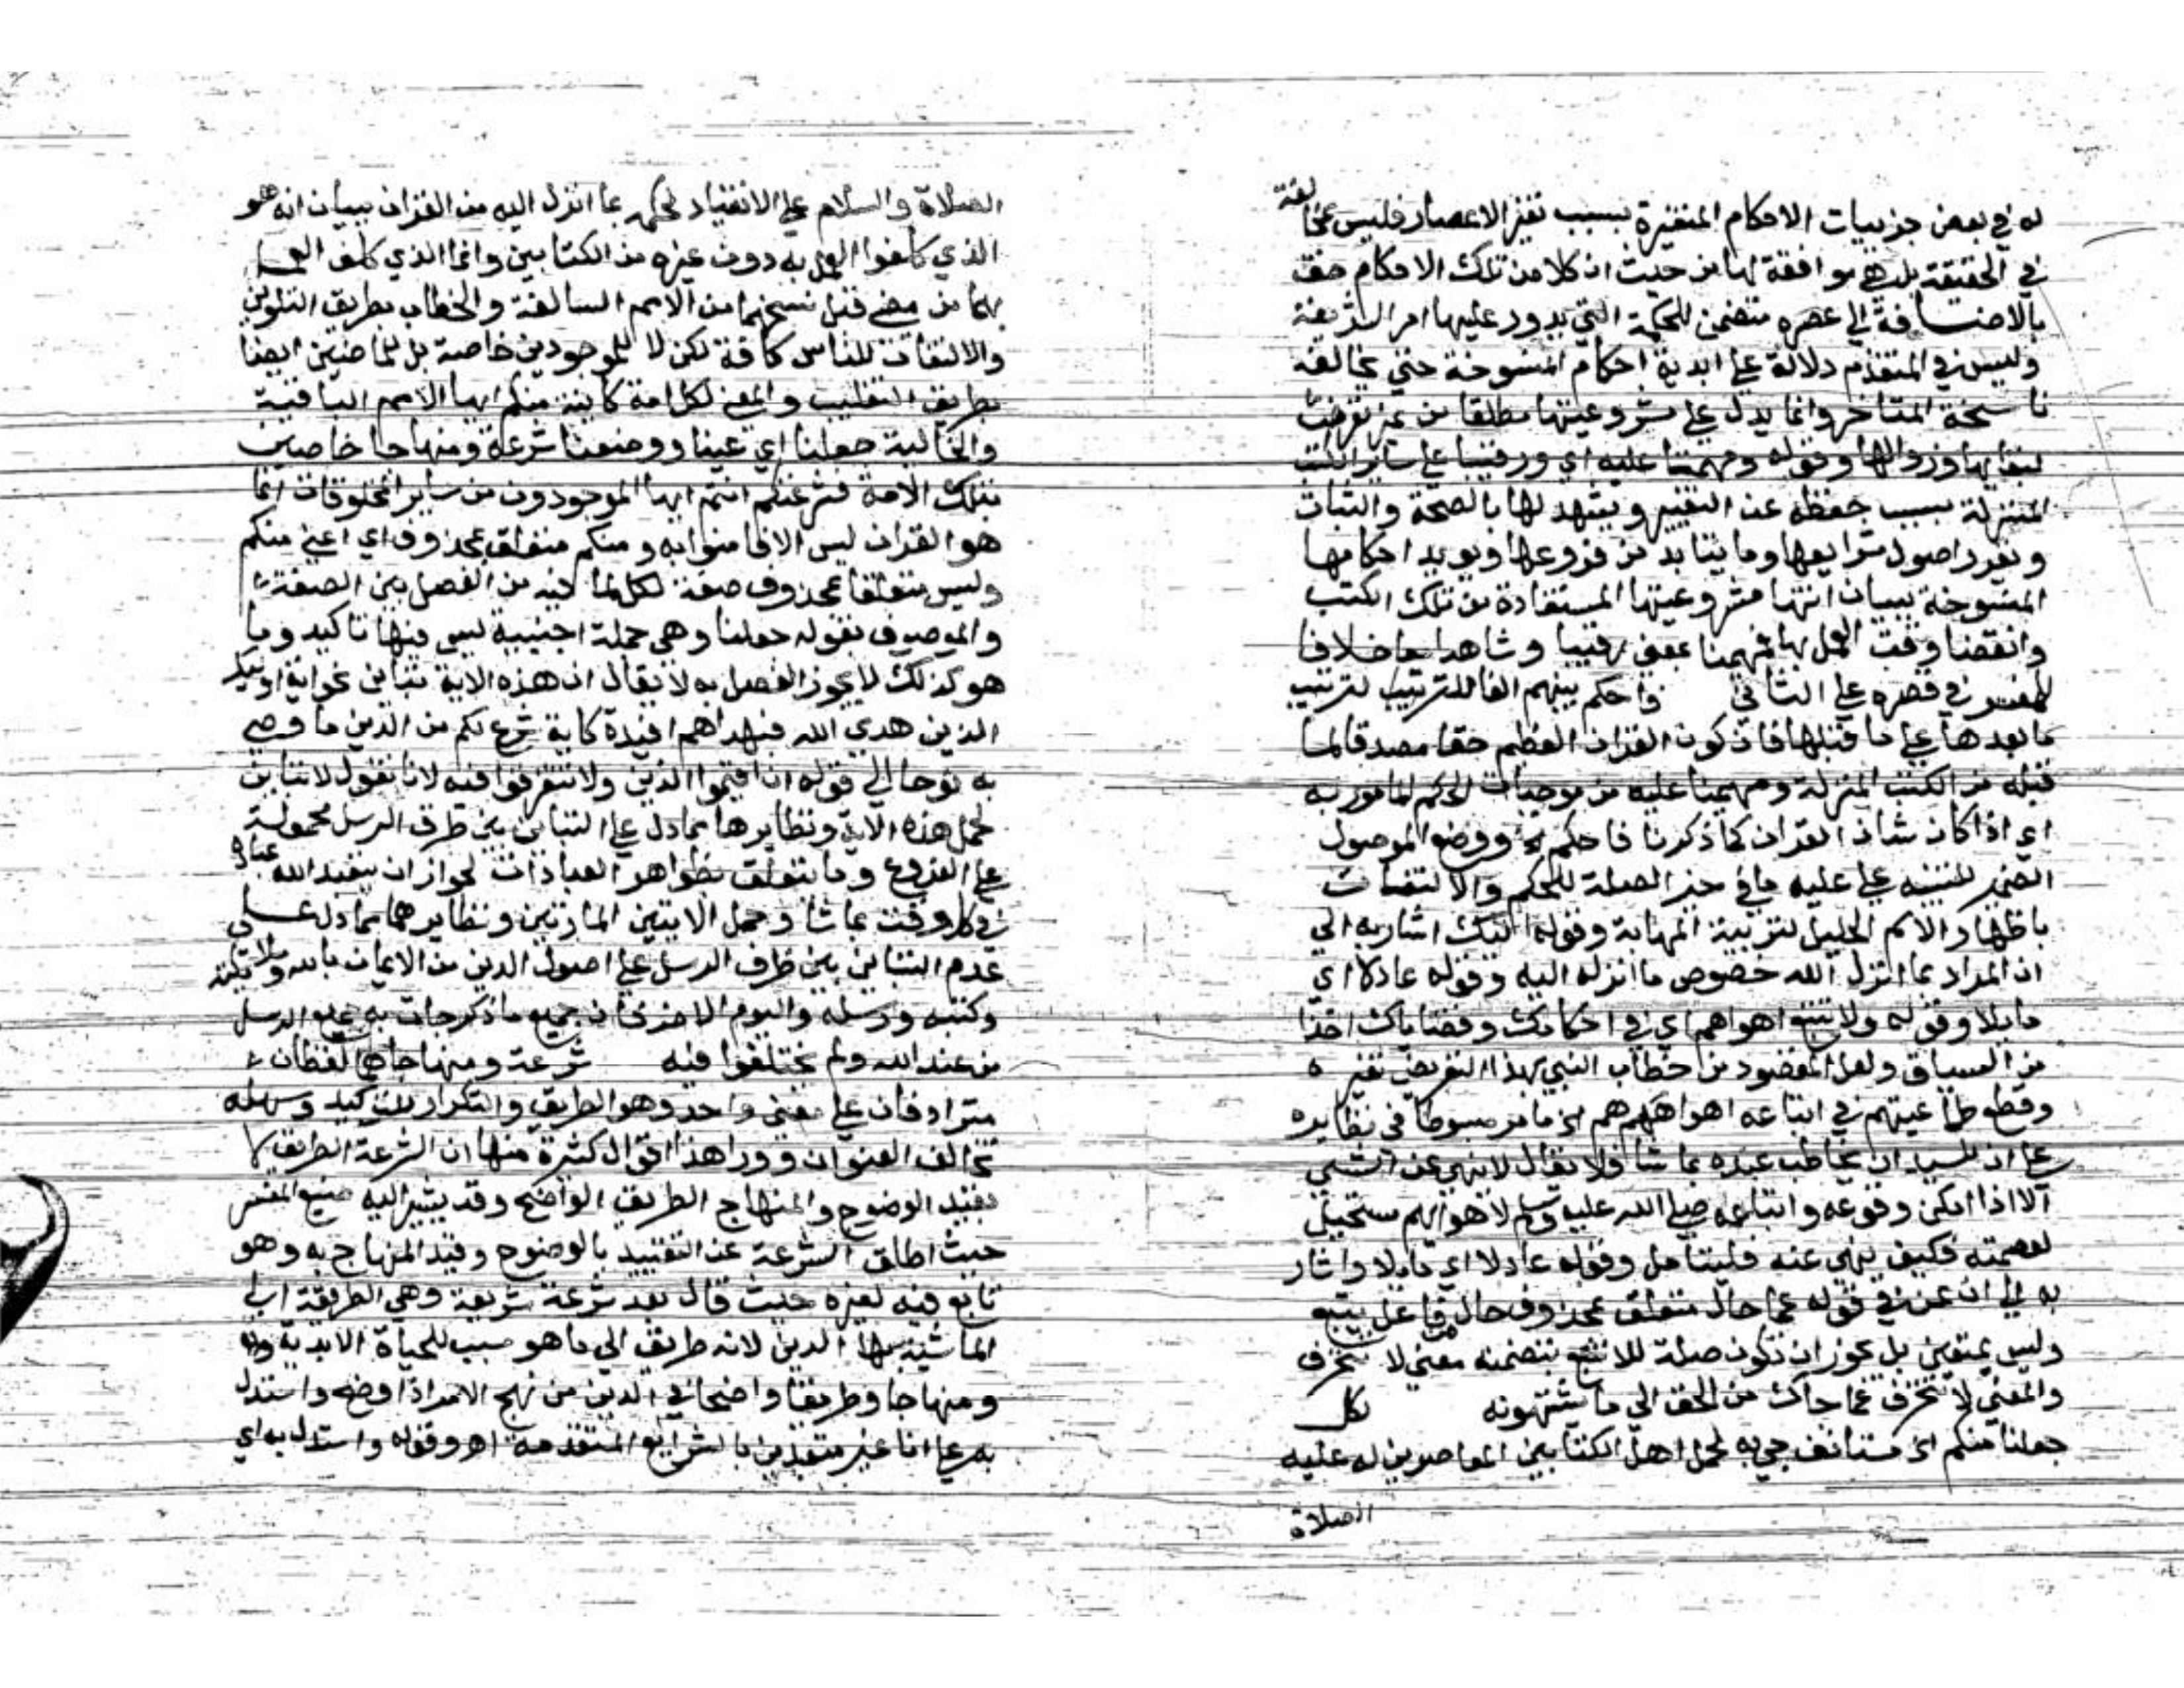 له في بعض جزييات الاحكام المتغيرة بسبب تغير الاعصار فليس بمخالفة
في الحقيقة بل هي موافقة لها من حيث ان كلا من تلك الاحكام حق
بالاضافة الي عصره متضمن للحكمة التي يدور عليها امر الشريعة
وليس في المتقدم دلالة علي ابدية احكام المنسوخة حتي يخالفه
ناسخة المتاخر وانما يدل علي مشروعيتها مطلقا من غير تعرض
لبقايها وزوالها وقوله ومهيمنا عليه اي ورقيبا علي ساير الكتب
المنزلة بسبب حفظه عن التغيير ويشهد لها بالصحة والثبات
ويقرر اصول شرايعها وما يتابد من فروعها ويويد احكامها
المنسوخة ببيان انتها مشروعيتها المستفادة من تلك الكتب
وانقضا وقت العمل بها فمهيمنا بمعني رقيبا وشاهدا معا خلافا
للمفسر في قصره علي الثاني فاحكم بينهم الفا للترتيب لترتيب
ما بعدها علي ما قبلها فان كون القران العظيم حقا مصدقا لما
قبله من الكتب المنزلة ومهيمنا عليه من موجبات الحكم المامور به
اي اذا كان شان القران كما ذكرنا فاحكم الخ ووضع الموصول
الضمير للتنبيه علي علية ما في حيز الصلة للحكم والالتفات
باظهار الاسم الجليل لتربية المهابة وقوله اليك اشار به الي
ان المراد بما انزل الله خصوص ما انزله اليه وقوله عادلا اي
مايلا وقوله ولا تتبع اهواهم اي في احكامك وقضاياك اخذا
من السياق ولعل المقصود من خطاب النبي بهذا التعريض بغيره
وقطع طماعيتهم في اتباعه اهواههم الخ ما مر مبسوطا في نظايره
علي ان للسيد ان يخاطب عبده بما شا فلا يقال لا نهي عن الشي
الا اذا امكن وقوعه واتباعه صلي الله عليه وسلم لاهوايهم مستحيل
لعصمته فكيف نهي عنه فليتامل وقوله عادلا اي مايلا واشار
به الي ان عن في قوله عما حال متعلق بمحذوف حال من فاعل يتبع
وليس بمتعين بل يجوز ان تكون صلة للاتتبع بتضمنه معني لا تنحرف
والمعني لا تنحرف عما جاك من الحق الي ما يشتهونه لكل
جعلنا منكم الخ مستانف جي به لحمل اهل الكتابين المعاصرين له عليه
الصلاة
الصلاة والسلام علي الانقياد لحكمه بما انزل اليه من القران ببيان انه هو
الذي كلفوا العمل به دون غيره من الكتابين وانما الذي كلف العمل
بهما من مضي قبل نسخهما من الامم السالفة والخطاب بطريق التلوين
والالتفات للناس كافة لكن لا للموجودين خاصة بل للماضين ايضا
بطريق التغليب والمعني لكل امة كاينة منكم ايها الامم الباقية
والخالية جعلنا اي عينا ووضعنا شرعة ومنهاجا خاصين
بتلك الامة فشرعتكم انتم ايها الموجودون من ساير المخلوقات انما
هو القران ليس الا فامنوا به ومنكم متعلق بمحذوف اي اعني منكم
وليس متعلقا بمحذوف صفة لكل لما فيه من الفصل بين الصفة
والموصوف بقوله جعلنا وهي جملة اجنبية ليس فيها تاكيد وما
هو كذلك لا يجوز الفصل به لا يقال ان هذه الاية تباين نحو اية اوليك
الذين هدي الله فبهداهم اقتده كاية شرع لكم من الدين ما وصي
به نوحا الي قوله ان اقيموا الدين ولا تتفرقوا فيه لانا نقول لا تباين
لحمل هذه الاية ونظايرها مما دل علي التباين بين طرف الرسل محمولة
علي الفروع وما يتعلق بظواهر العبادات لجواز ان يتعبد الله عباده
في كل وقت بما شا وحمل الايتين المارتين ونظايرهما مما دل علي
عدم التباين بين طرف الرسل علي اصول الدين من الايمان بالله وملايكته
وكتبه ورسله واليوم الاخر فان جميع ما ذكر جات به جميع الرسل
من عند الله ولم يختلفوا فيه شرعة ومنهاجا هما لفظان
مترادفان علي معني واحد وهو الطريق والتكرار للتاكيد وسهله
تخالف العنوان وورا هذا اقوال كثيرة منها ان الشرعة الطريق لا
بقيد الوضوح والمنهاج الطريق الواضح وقد يشير اليه صنيع المفسر
حيث اطلق الشرعة عن التقييد بالوضوح وقيد المنهاج به وهو
تابع فيه لغيره حيث قال بعد شرعة شريعة وهي الطريقة الي
الما شبه بها الدين لانه طريق الي ما هو سبب للحياة الابدية
ومنهاجا وطريقا واضحا في الدين من نهج الامر اذا وضح واستدل
به علي انا غير متعبدين بالشرايع المتقدمة اهـ وقوله واستدل به اي